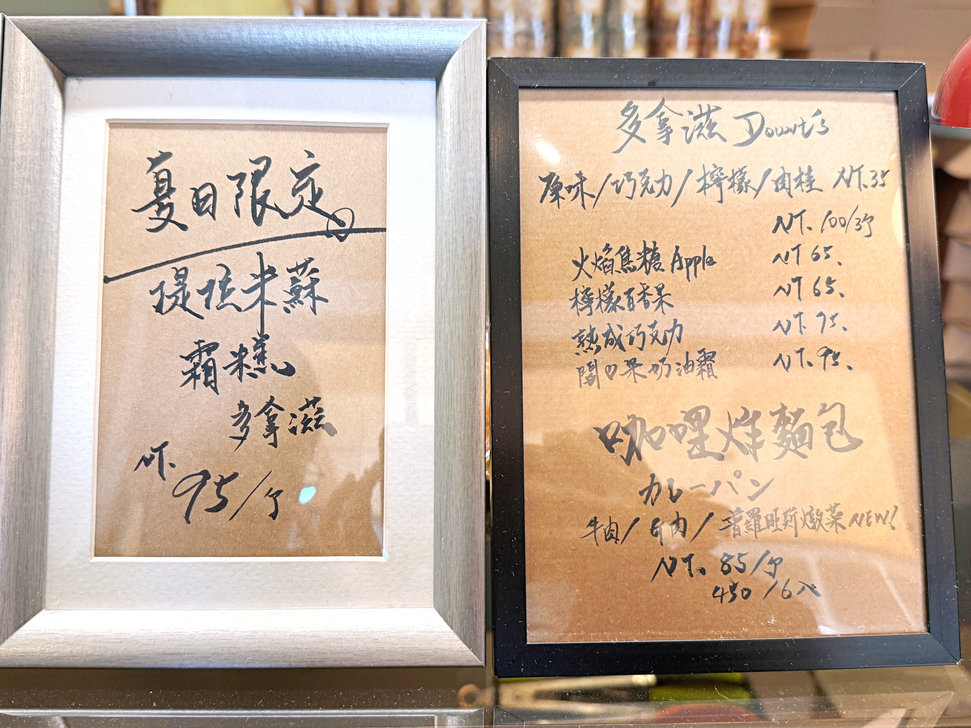 夏日限定
提拉米蘇
霜糕
多拿滋
NT.
95/个
多拿滋 Dount's
原味/巧克力/檸檬/肉桂 NT.35
NT.100/3个
火焰焦糖Apple NT 65.
檸檬百香果 NT 65.
熟成巧克力 NT.75.
開心果奶油霜 NT.95.
咖哩炸麵包
カレーパン
牛肉/豬肉/普羅旺斯燉菜NEW!
NT. 85/个
450/6入